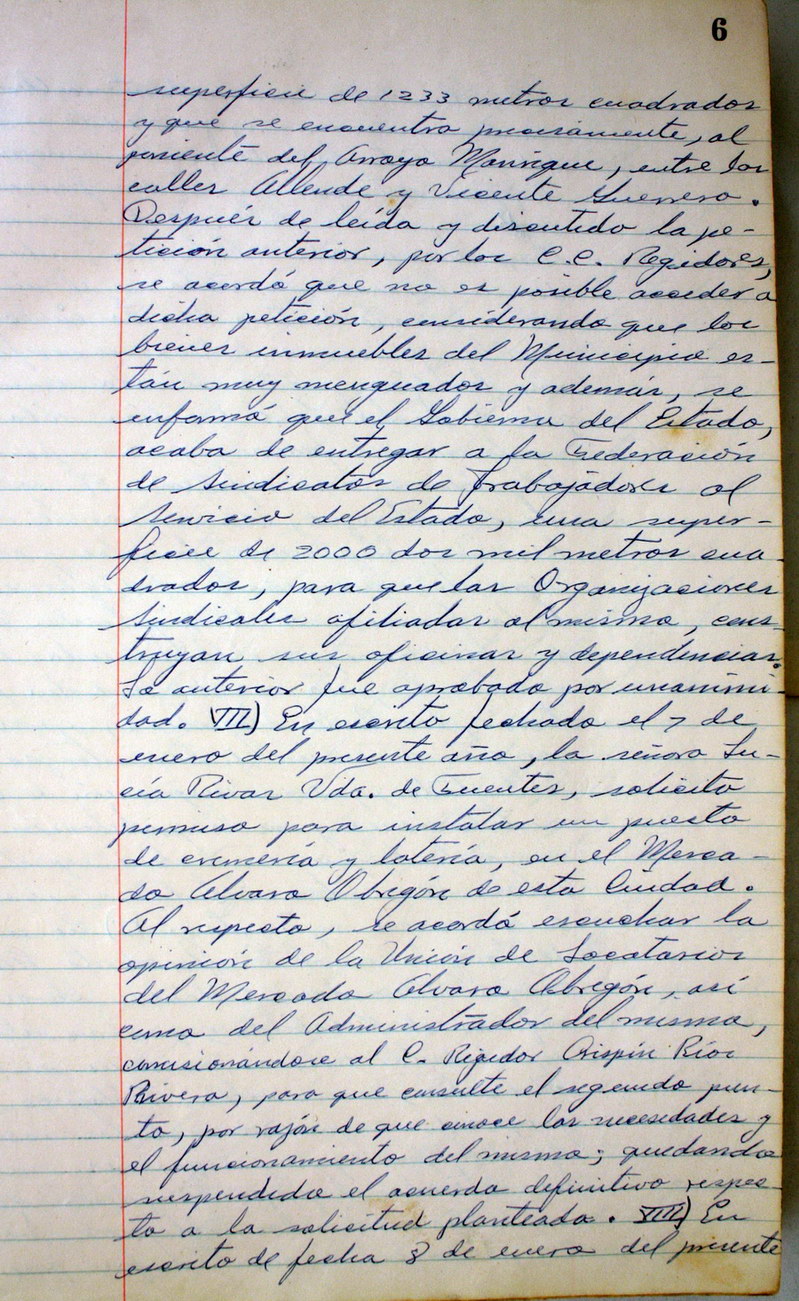 6
superficie de 1233 metros cuadrados
y que se encuentra precisamente, al
poniente del Arroyo Manrique, entre las
calles Allende y Vicente Guerrero.
Después de leída y discutido la pe-
tición anterior, por los C.C. Regidores,
se acordó que no es posible acceder a
dicha petición, considerando que los
bienes inmuebles del Municipio es-
tán muy menguados y además, se
informó que el Gobierno del Estado,
acaba de entregar a la Federación
de Sindicatos de Trabajadores al
Servicio del Estado, una super-
ficie de 2000 dos mil metros cua-
drados, para que las Organizaciones
Sindicales afiliadas al mismo, cons-
truyan sus oficinas y dependencias.
Lo anterior fue aprobado por unanimi-
dad. VII) En escrito fechado el 7 de
enero del presente año, la señora Lu-
cía Rivas Vda. de Fuentes, solicita
permiso para instalar un puesto
de cremería y lotería, en el Merca-
do Alvaro Obregón de esta Ciudad.
Al respecto, se acordó escuchar la
opinión de la Unión de Locatarios
del Mercado Alvaro Obregón, así
como del Administrador del mismo,
comisionándose al C. Regidor Crispín Ríos
Rivera, para que consulte el segundo pun-
to, por razón de que conoce las necesidades y
el funcionamiento del mismo; quedando
suspendido el acuerdo definitivo respec-
to a la solicitud planteada. VIII) En
escrito de fecha 8 de enero del presente